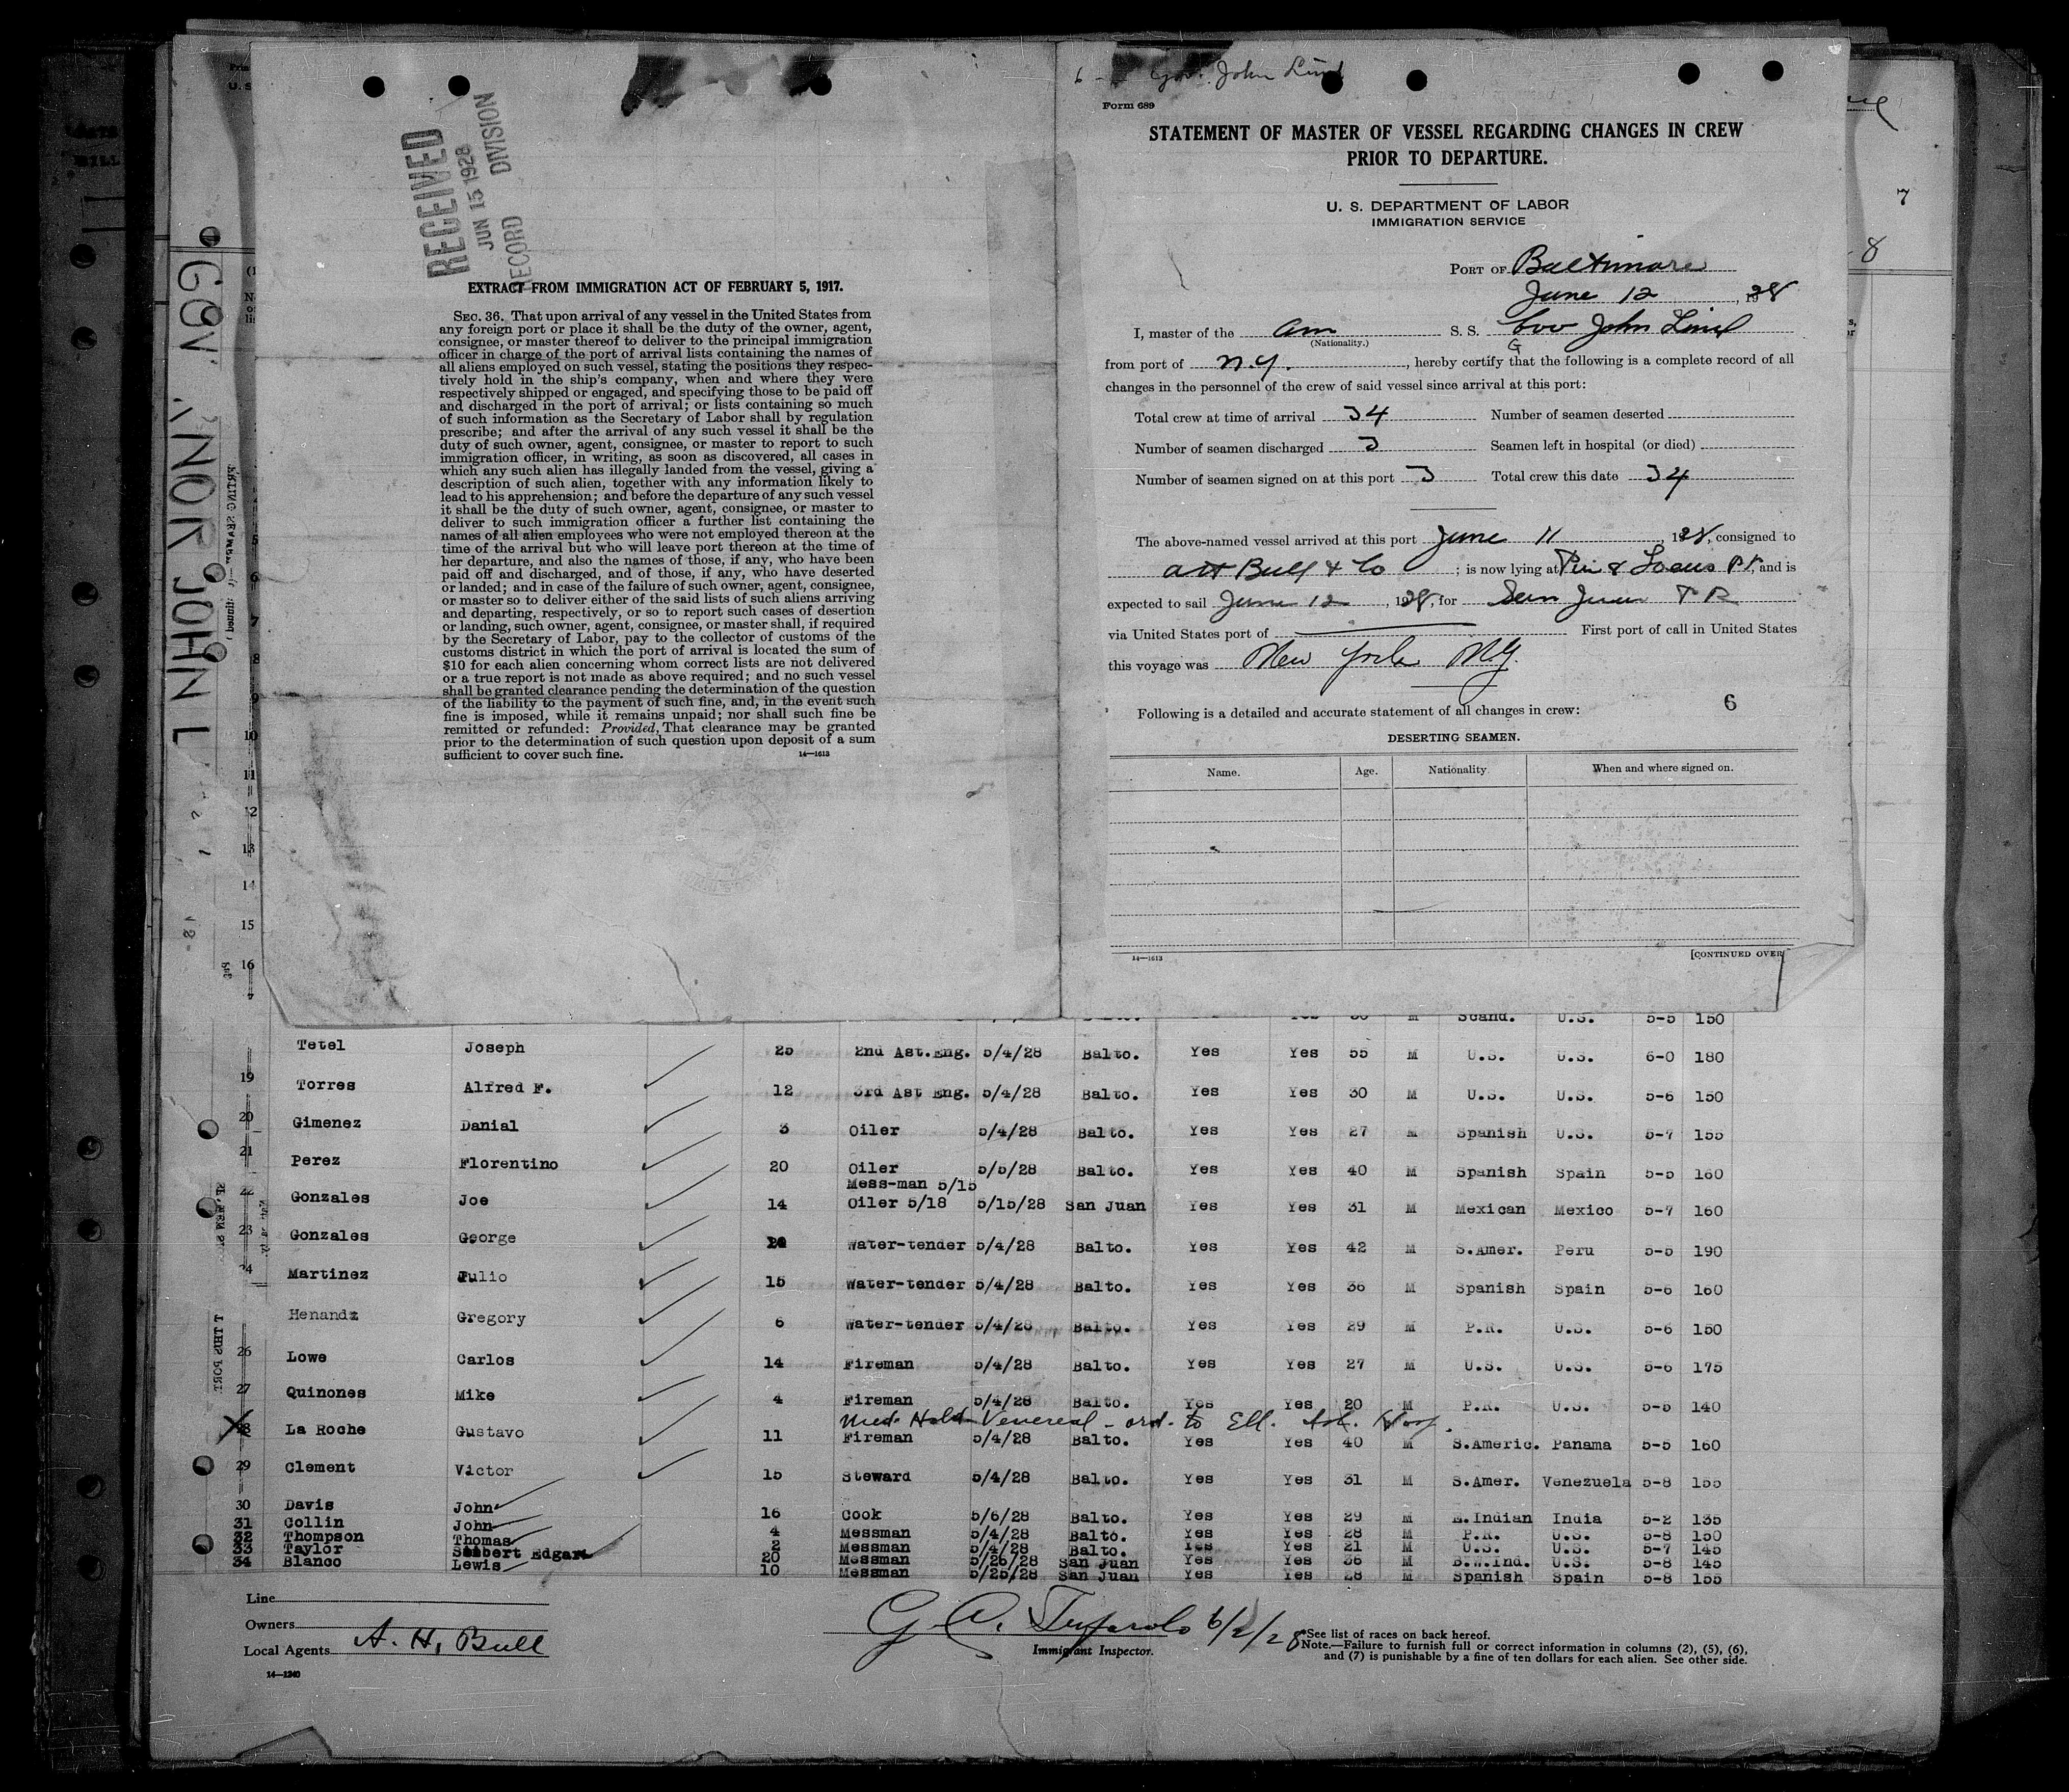 RECEIVED
JUN 15 1928
RECORD DIVISION
EXTRACT FROM IMMIGRATION ACT OF FEBRUARY 5, 1917.
SEC. 36. That upon arrival of any vessel in the United States from
any foreign port or place it shall be the duty of the owner, agent,
consignee, or master thereof to deliver to the principal immigration
officer in charge of the port of arrival lists containing the names of
all aliens employed on such vessel, stating the positions they respec-
tively hold in the ship's company, when and where they were
respectively shipped or engaged, and specifying those to be paid off
and discharged in the port of arrival; or lists containing so much
of such information as the Secretary of Labor shall by regulation
prescribe; and after the arrival of any such vessel it shall be the
duty of such owner, agent, consignee, or master to report to such
immigration officer, in writing, as soon as discovered, all cases in
which any such alien has illegally landed from the vessel, giving a
description of such alien, together with any information likely to
lead to his apprehension; and before the departure of any such vessel
it shall be the duty of such owner, agent, consignee, or master to
deliver to such immigration officer a further list containing the
names of all alien employees who were not employed thereon at the
time of the arrival but who will leave port thereon at the time of
her departure, and also the names of those, if any, who have been
paid off and discharged, and of those, if any, who have deserted
or landed; and in case of the failure of such owner, agent, consignee,
or master so to deliver either of the said lists of such aliens arriving
and departing, respectively, or so to report such cases of desertion
or landing, such owner, agent, consignee, or master shall, if required
by the Secretary of Labor, pay to the collector of customs of the
customs district in which the port of arrival is located the sum of
$10 for each alien concerning whom correct lists are not delivered
or a true report is not made as above required; and no such vessel
shall be granted clearance pending the determination of the question
of the liability to the payment of such fine, and, in the event such
fine is imposed, while it remains unpaid; nor shall such fine be
remitted or refunded: Provided, That clearance may be granted
prior to the determination of such question upon deposit of a sum
sufficient to cover such fine.
14—1613
Gov. John Lind
Form 689
STATEMENT OF MASTER OF VESSEL REGARDING CHANGES IN CREW
PRIOR TO DEPARTURE.
U. S. DEPARTMENT OF LABOR
IMMIGRATION SERVICE
PORT OF Baltimore
June 12, 1928
I, master of the Am S. S. Gov John Lind
(Nationality.)
from port of N.Y., hereby certify that the following is a complete record of all
changes in the personnel of the crew of said vessel since arrival at this port:
Total crew at time of arrival 34 Number of seamen deserted
Number of seamen discharged 3 Seamen left in hospital (or died)
Number of seamen signed on at this port 3 Total crew this date 34
The above-named vessel arrived at this port June 11, 1928, consigned to
AH Bull & Co; is now lying at Pier 8 Locus Pt, and is
expected to sail June 12, 1928, for San Juan P R
via United States port of First port of call in United States
this voyage was New York N.Y.
6
Following is a detailed and accurate statement of all changes in crew:
DESERTING SEAMEN.
Name. Age. Nationality When and where signed on.
14—1613 [CONTINUED OVER]
7
8
GOV'RNOR JOHN L
Scand. U.S. 5-5 150
Tetel Joseph 25 2nd Ast.Eng. 5/4/28 Balto. Yes Yes 55 M U.S. U.S. 6-0 180
19 Torres Alfred F. 12 3rd Ast Eng. 5/4/28 Balto. Yes Yes 30 M U.S. U.S. 5-6 150
20 Gimenez Danial 3 Oiler 5/4/28 Balto. Yes Yes 27 M Spanish U.S. 5-7 155
21 Perez Florentino 20 Oiler 5/5/28 Balto. Yes Yes 40 M Spanish Spain 5-5 160
Mess-man 5/15
22 Gonzales Joe 14 Oiler 5/18 5/15/28 San Juan Yes Yes 31 M Mexican Mexico 5-7 160
23 Gonzales George Water-tender 5/4/28 Balto. Yes Yes 42 M S.Amer. Peru 5-5 190
24 Martinez Julio 15 Water-tender 5/4/28 Balto. Yes Yes 36 M Spanish Spain 5-6 160
Henandz Gregory 6 Water-tender 5/4/28 Balto. Yes Yes 29 M P.R. U.S. 5-6 150
26 Lowe Carlos 14 Fireman 5/4/28 Balto. Yes Yes 27 M U.S. U.S. 5-6 175
27 Quinones Mike 4 Fireman 5/4/28 Balto. Yes Yes 20 M P.R. U.S. 5-5 140
Med Hold Venereal - ord. to Ell. Isl. Hosp.
28 La Roche Gustavo 11 Fireman 5/4/28 Balto. Yes Yes 40 M S.Americ. Panama 5-5 160
29 Clement Victor 15 Steward 5/4/28 Balto. Yes Yes 31 M S.Amer. Venezuela 5-8 155
30 Davis John 16 Cook 5/6/28 Balto. Yes Yes 29 M E.Indian India 5-2 135
31 Collin John 4 Messman 5/4/28 Balto. Yes Yes 28 M P.R. U.S. 5-8 150
32 Thompson Thomas 2 Messman 5/4/28 Balto. Yes Yes 21 M U.S. U.S. 5-7 145
33 Taylor Edgar 20 Messman 5/26/28 San Juan Yes Yes 36 M B.W.Ind. U.S. 5-8 145
34 Blanco Lewis 10 Messman 5/25/28 San Juan Yes Yes 28 M Spanish Spain 5-8 155
Line
Owners
Local Agents A. H. Bull
14—1240
6/2/28
Immigrant Inspector.
*See list of races on back hereof.
Note.—Failure to furnish full or correct information in columns (2), (5), (6),
and (7) is punishable by a fine of ten dollars for each alien. See other side.